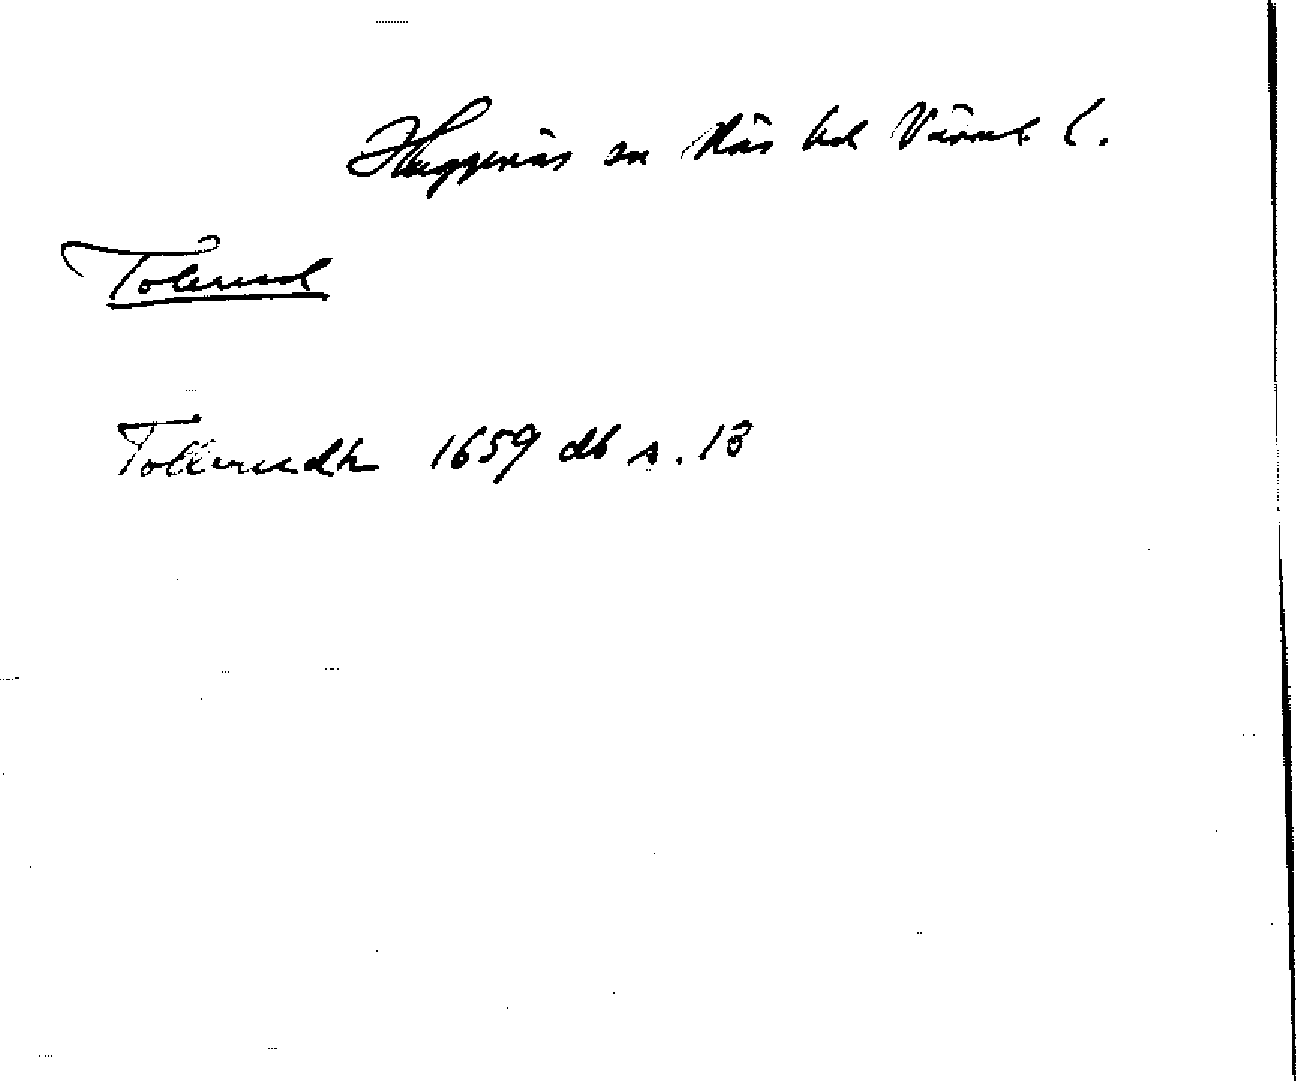 Huggenäs sn Näs hd Värml. l.
Tolerud
Tollerudh 1659 db s. 13